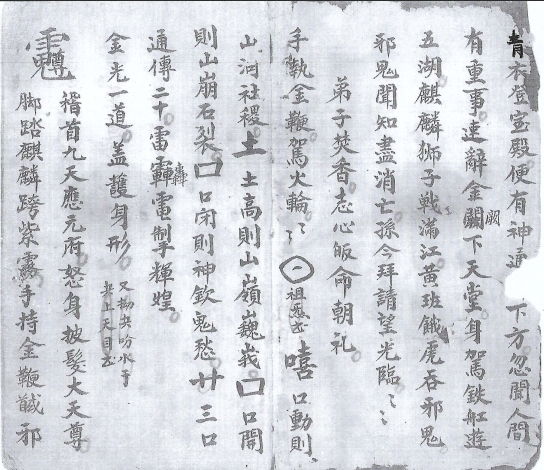 青衣登宝殿便有神通　下方忽聞人間
有重事速辞金闕下天堂身駕鉄船遊
五湖麒麟獅子戱滿江黄班餓虎吞邪鬼
邪鬼聞知盡消亡孫今拜請望光臨〻
弟子焚香志心皈命朝礼
手執金鞭駕火輪〻　嘻口動則
山河社稷土土高則山嶺巍峩口口開
則山崩石裂口口闭則神欽鬼愁廿三口
通傳二十雷霹轟雷掣輝煌
金光一道盖護身形
稽首九天應元府怒身披髮大天尊
脚踏麒麟跨紫霧手持金鞭馘邪